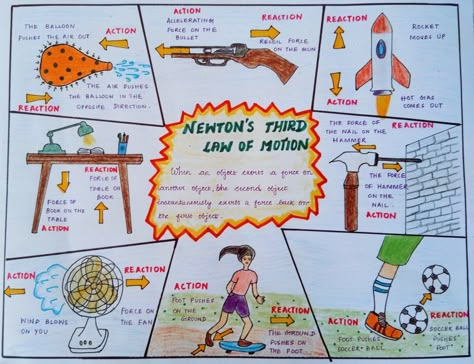 THE BALLOON
PUSHES THE AIR OUT
ACTION
THE AIR PUSHES
THE BALLOON IN THE
OPPOSITE DIRECTION.
REACTION
ACTION
ACCELERATING
FORCE ON THE
BULLET
REACTION
RECOIL FORCE
ON THE GUN
REACTION
ROCKET
MOVES UP
ACTION
HOT GAS
COMES OUT
NEWTON'S THIRD
LAW OF MOTION
When an object exerts a force on
another object, the second object
instantaneously exerts a force back on
the first object.
REACTION
FORCE OF
TABLE ON
BOOK
FORCE OF
BOOK ON THE
TABLE
ACTION
THE FORCE OF
THE NAIL ON THE
HAMMER
REACTION
THE FORCE
OF HAMMER
ON THE
NAIL.
ACTION
ACTION
WIND BLOWS
ON YOU
REACTION
FORCE ON
THE FAN
ACTION
FOOT PUSHES
ON THE
GROUND
REACTION
THE GROUND
PUSHES ON
THE FOOT
ACTION
FOOT PUSHES
SOCCER BALL
REACTION
SOCCER BALL
PUSHES
FOOT